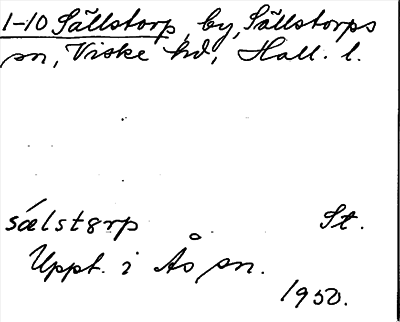 1-10 Sällstorp, by, Sällstorps
sn, Viske hd, Hall. l.
sǽlstɞrp St.
Uppt. i Ås sn.
1950.